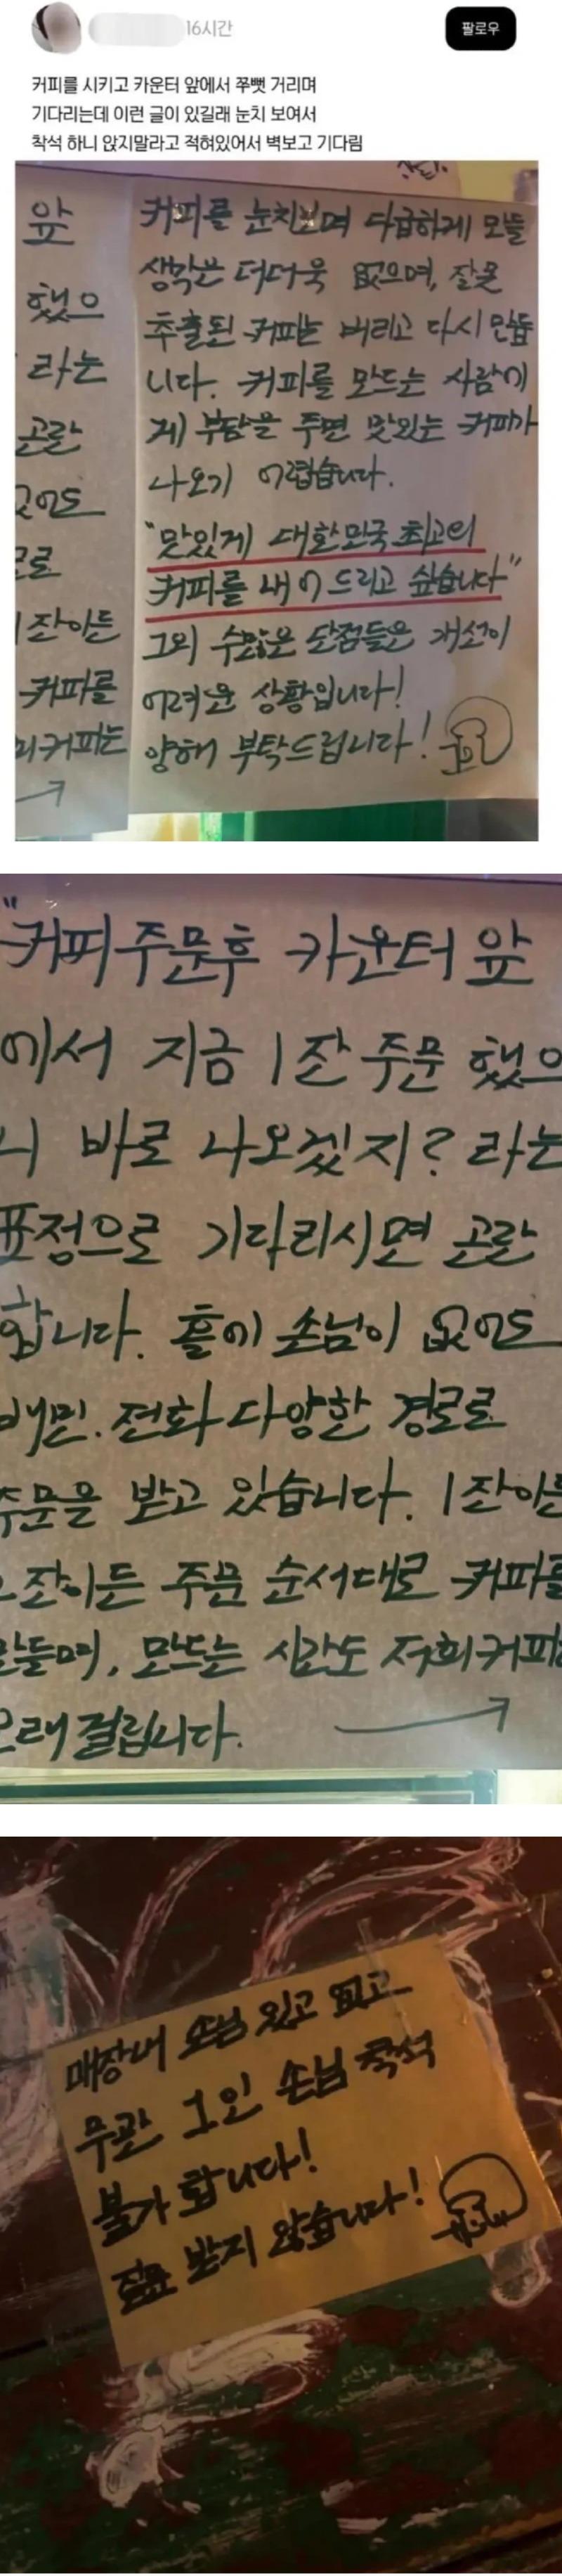 16시간
팔로우
커피를 시키고 카운터 앞에서 쭈뼛 거리며
기다리는데 이런 글이 있길래 눈치 보여서
착석 하니 앉지말라고 적혀있어서 벽보고 기다림
앞
했으
라는
곤란
없어도
로로
1잔이든
커피를
피커피는
커피를 눈치보며 다급하게 만들
생각은 더더욱 없으며, 잘못
추출된 커피는 버리고 다시 만듭
니다. 커피를 만드는 사람에
게 부담을 주면 맛있는 커피가
나오기 어렵습니다.
"맛있게 대한민국 최고의
커피를 내어 드리고 싶습니다"
그외 수많은 단점들은 개선이
어려운 상황입니다!
양해 부탁드립니다!
"커피주문후 카운터 앞
에서 지금 1잔 주문 했으
니 바로 나오겠지? 라는
표정으로 기다리시면 곤란
합니다. 홀에 손님이 없어도
배민. 전화 다양한 경로로
주문을 받고 있습니다. 1잔이든
잔이든 주문 순서대로 커피를
만들며, 만드는 시간도 저희커피는
오래걸립니다.
매장내 손님 있고 없고
무관 1인 손님 착석
불가 합니다!
질문 받지 않습니다!